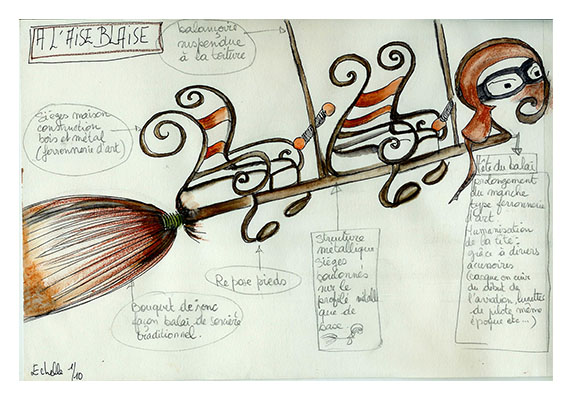 A L'AISE BLAISE
balançoire
suspendue
à la toiture
Sièges maison
construction
bois et métal
(ferronnerie d'art)
Repose pieds
Bouquet de jonc
façon balai de sorcière
traditionnel.
Structure
métallique
Sièges
boulonnés
sur le
profilé métalli
que de
base
tête du balai
prolongement
du manche
type ferronnerie
d'art.
Humanisation
de la tête
grâce à divers
accessoires
(casque en cuir
du début de
l'aviation, lunettes
de pilote même
époque etc...)
Echelle 1/10